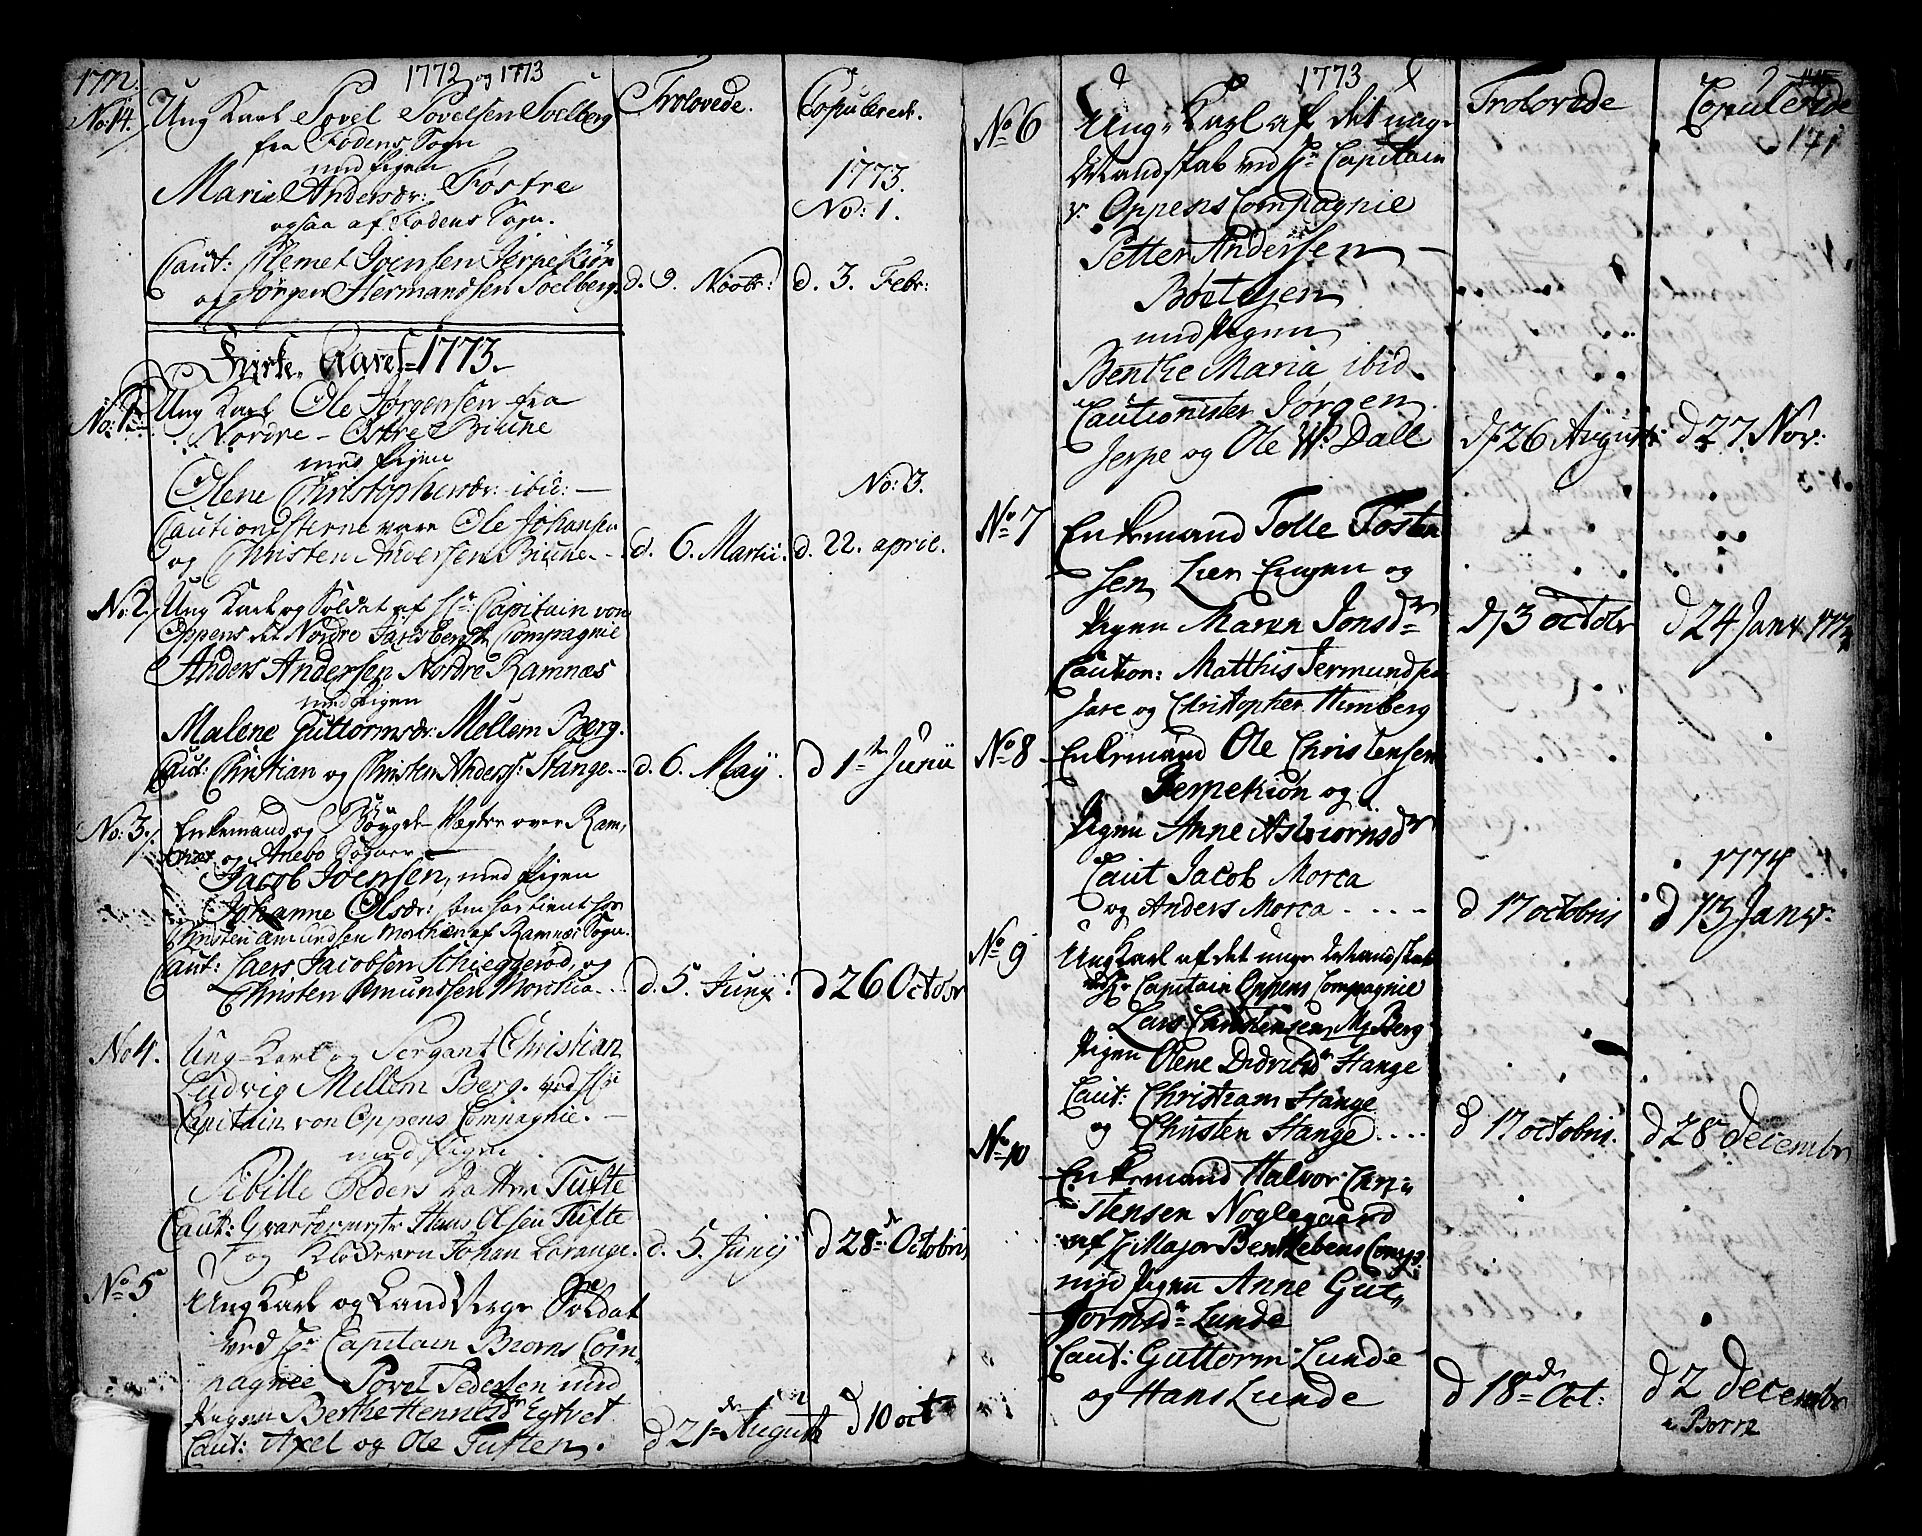 1772 og 1773
1772.
No: 14. Ung Karl Povel Povelsen Soelberg
Trolovede.
Copulerede.
fra Fodens Sogn
med Pigen
Marie Andersdr: Føstre
ogsaa af Fodens Sogn.
1773.
No: 1.
Caut: Clemet Joensen Jerpekiøn
og Jørgen Hermandsen Soelberg. d. 9. Novbr: d. 3. Febr:
Kirke-Aaret 1773.
No: 1. Ung Karl Ole Jørgensen fra
Nordre - Østre Biune
med Pigen
Olene Christophersdr: ibid: —
No: 3.
Cautionisterne vare Ole Johansen
og Christen Andersen Biune. — d. 6. Martii. d. 22. april.
No: 2. Ung Karl og Soldat af Hr: Capitain von
Oppens det Nordre Jarlsbergske Compagnie
Anders Andersen Nordre Ramnæs
med Pigen
Malene Guttormsdr: Mellem Berg.
Caut: Christian og Christen Anderss: Stange. d. 6. Maij. d 1ste Junii
No: 3. Enkemand og Bøygde-Vægter over Ram,
næs og Anebo Sogner —
Jacob Joensen, med Pigen
Johanne Olsdr: som har tient hos
Christen Amundsen Morchæn af Ramnæs Sogn.
Caut: Laers Jacobsen Schieggerød, og
Christen Amundsen Morchæ. d. 5. Junij: d 26 Octobr
No 4. Ung-Karl og Sergant Christian
Ludvig Mellem Berg. ved Hr:
Capitain von Oppens Compagnie. —
med Pigen
Sibille Peders Datter Tufte
Caut: Qvartermestr Hans Olsen Tufte
og Klokkeren Johan Lorange. d. 5. Junij d 28de Octobris
No 5 Ung Karl og Land Værge Soldat
ved Hr Capitain Biørns Com-
pagnie Povel Pedersen med
Pigen Berthe Hennesdr Egtvet
Caut: Axel og Ole Tuften. d 21de Augusti d 10 oct
1773
Trolovede
Copulerede
171
No 6 Ung Karl af det unge
Mandskab ved Hr Capitain
v: Oppens Compagnie
Petter Andersen —
Boelsjen
med Pigen
Benthe Maria ibid.
Cautionister Jørgen
Jerpe og Ole Ws: Dall d 26 Augusti: d 27. Nov:
No 7 Enkemand Tolle Tosten
sen Lier Eugen og
Pigen Maren Jonsdr d 3 octobr d 24 Janr 1774
Caution: Matthis Jermundsen
Jare og Christopher Himberg
No 8 Enkemand Ole Christensen
Jerpekiøn og
Pigen Anne Asbiørnsdr
Caut Jacob Morca
1774
og Anders Morca. . . . . d 17 octobris d 13 Janr.
No 9 Ung Karl af det unge Mandskab
ved Hr Capitain Oppens Compagnie
Lars Christensen M: Berg
Pigen Olene Didrichsdr Stange
Caut: Christian Stange
og Christen Stange . . . . d 17 octobris. d 28 decembr
No 10
Enkemand Halvor Chri-
stensen Noglegaard
af Hr Major Benklebens Comp:
med Pigen Anne Gut-
tormsdr Lunde
Caut: Guttorm Lunde
og Hans Lunde d 18de Oct: d 2 decembr